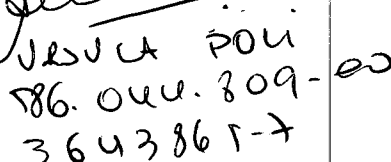 URSULA POLI
586.044.809-00
3643865-7